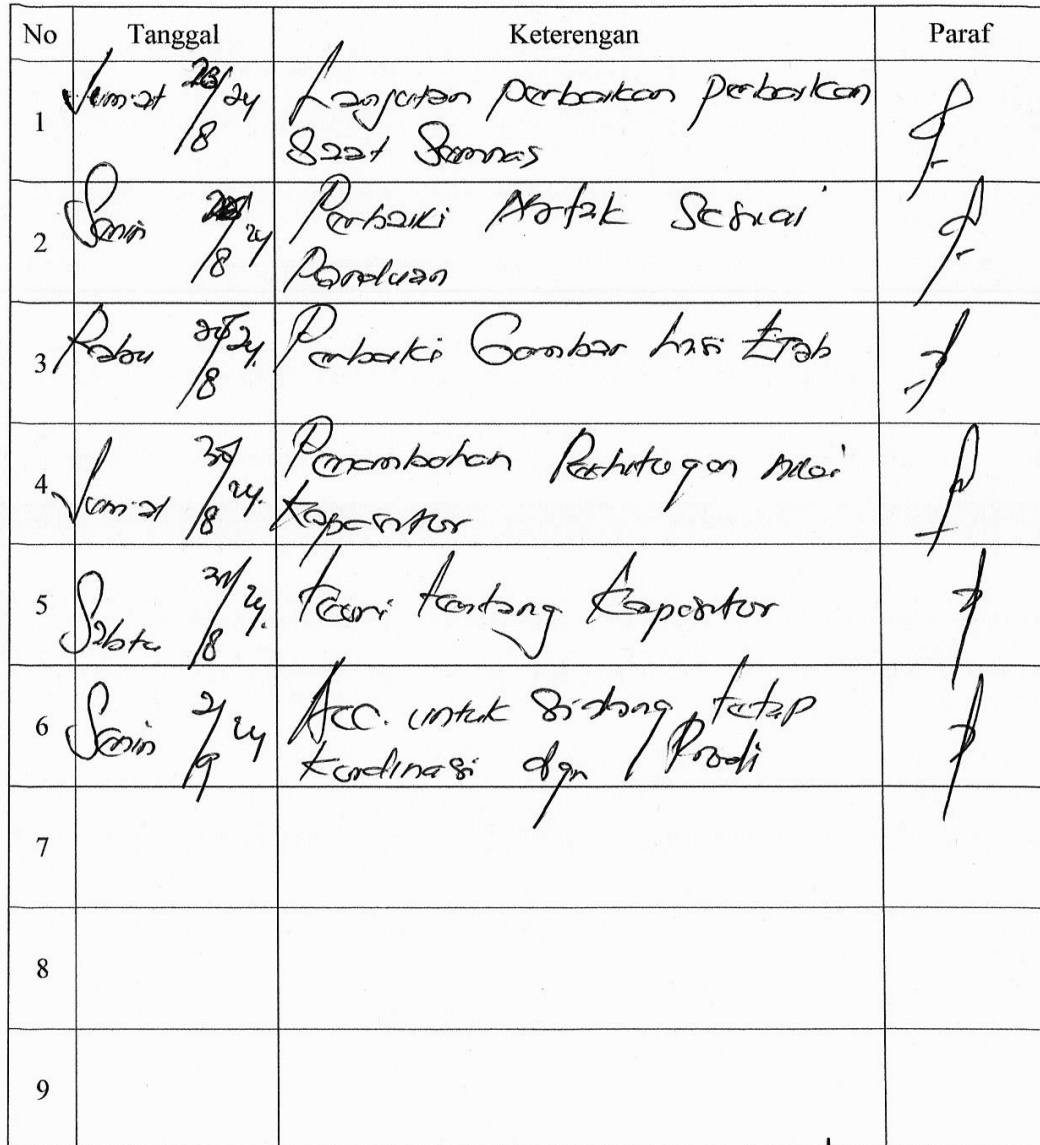 No Tanggal Keterengan Paraf
1 Jum'at 23/8 24 Lanjutan perbaikan perbaikan
Saat Semnas
2 Senin 26/8 24 Perbaiki Abstak Sesuai
Panduan
3 Rabu 28/8 24. Perbaiki Gambar hasil Etab
4 Jum'at 30/8 24. Penambahan Perhitugan nilai
Kapasitor
5 Sabtu 31/8 24. Teori tentang Kapasitor
6 Senin 2/9 24 Acc. untuk Sidang, tetap
Kordinasi dgn Prodi
7
8
9